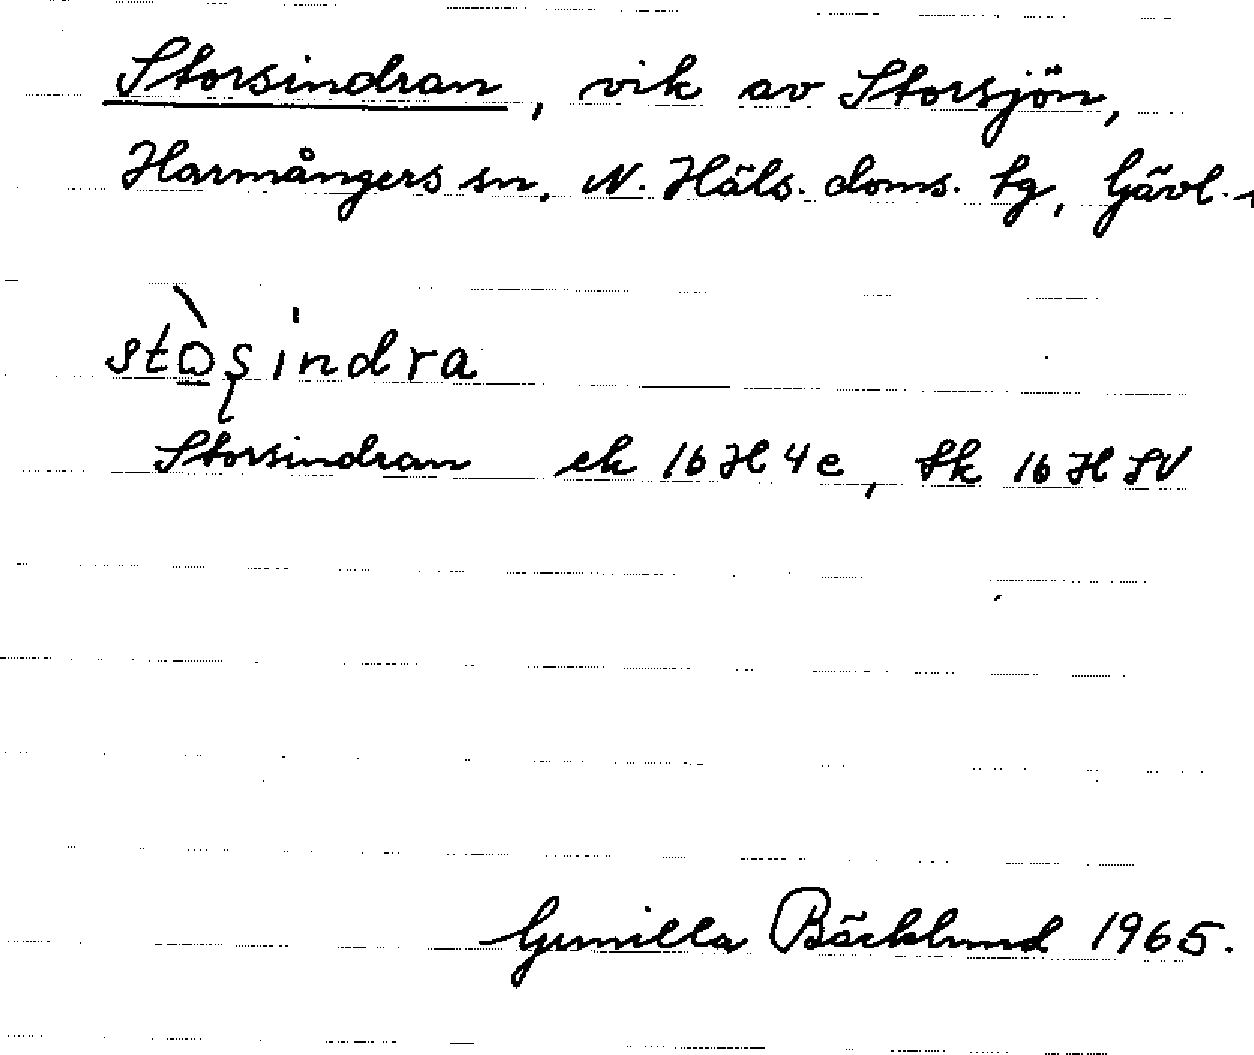 Storsindran, vik av Storsjön,
Harmångers sn, N. Häls. doms. tg, Gävl.
stòs̩indra
Storsindran ek 16H4e, tk 16H SV
Gunilla Bäcklund 1965.